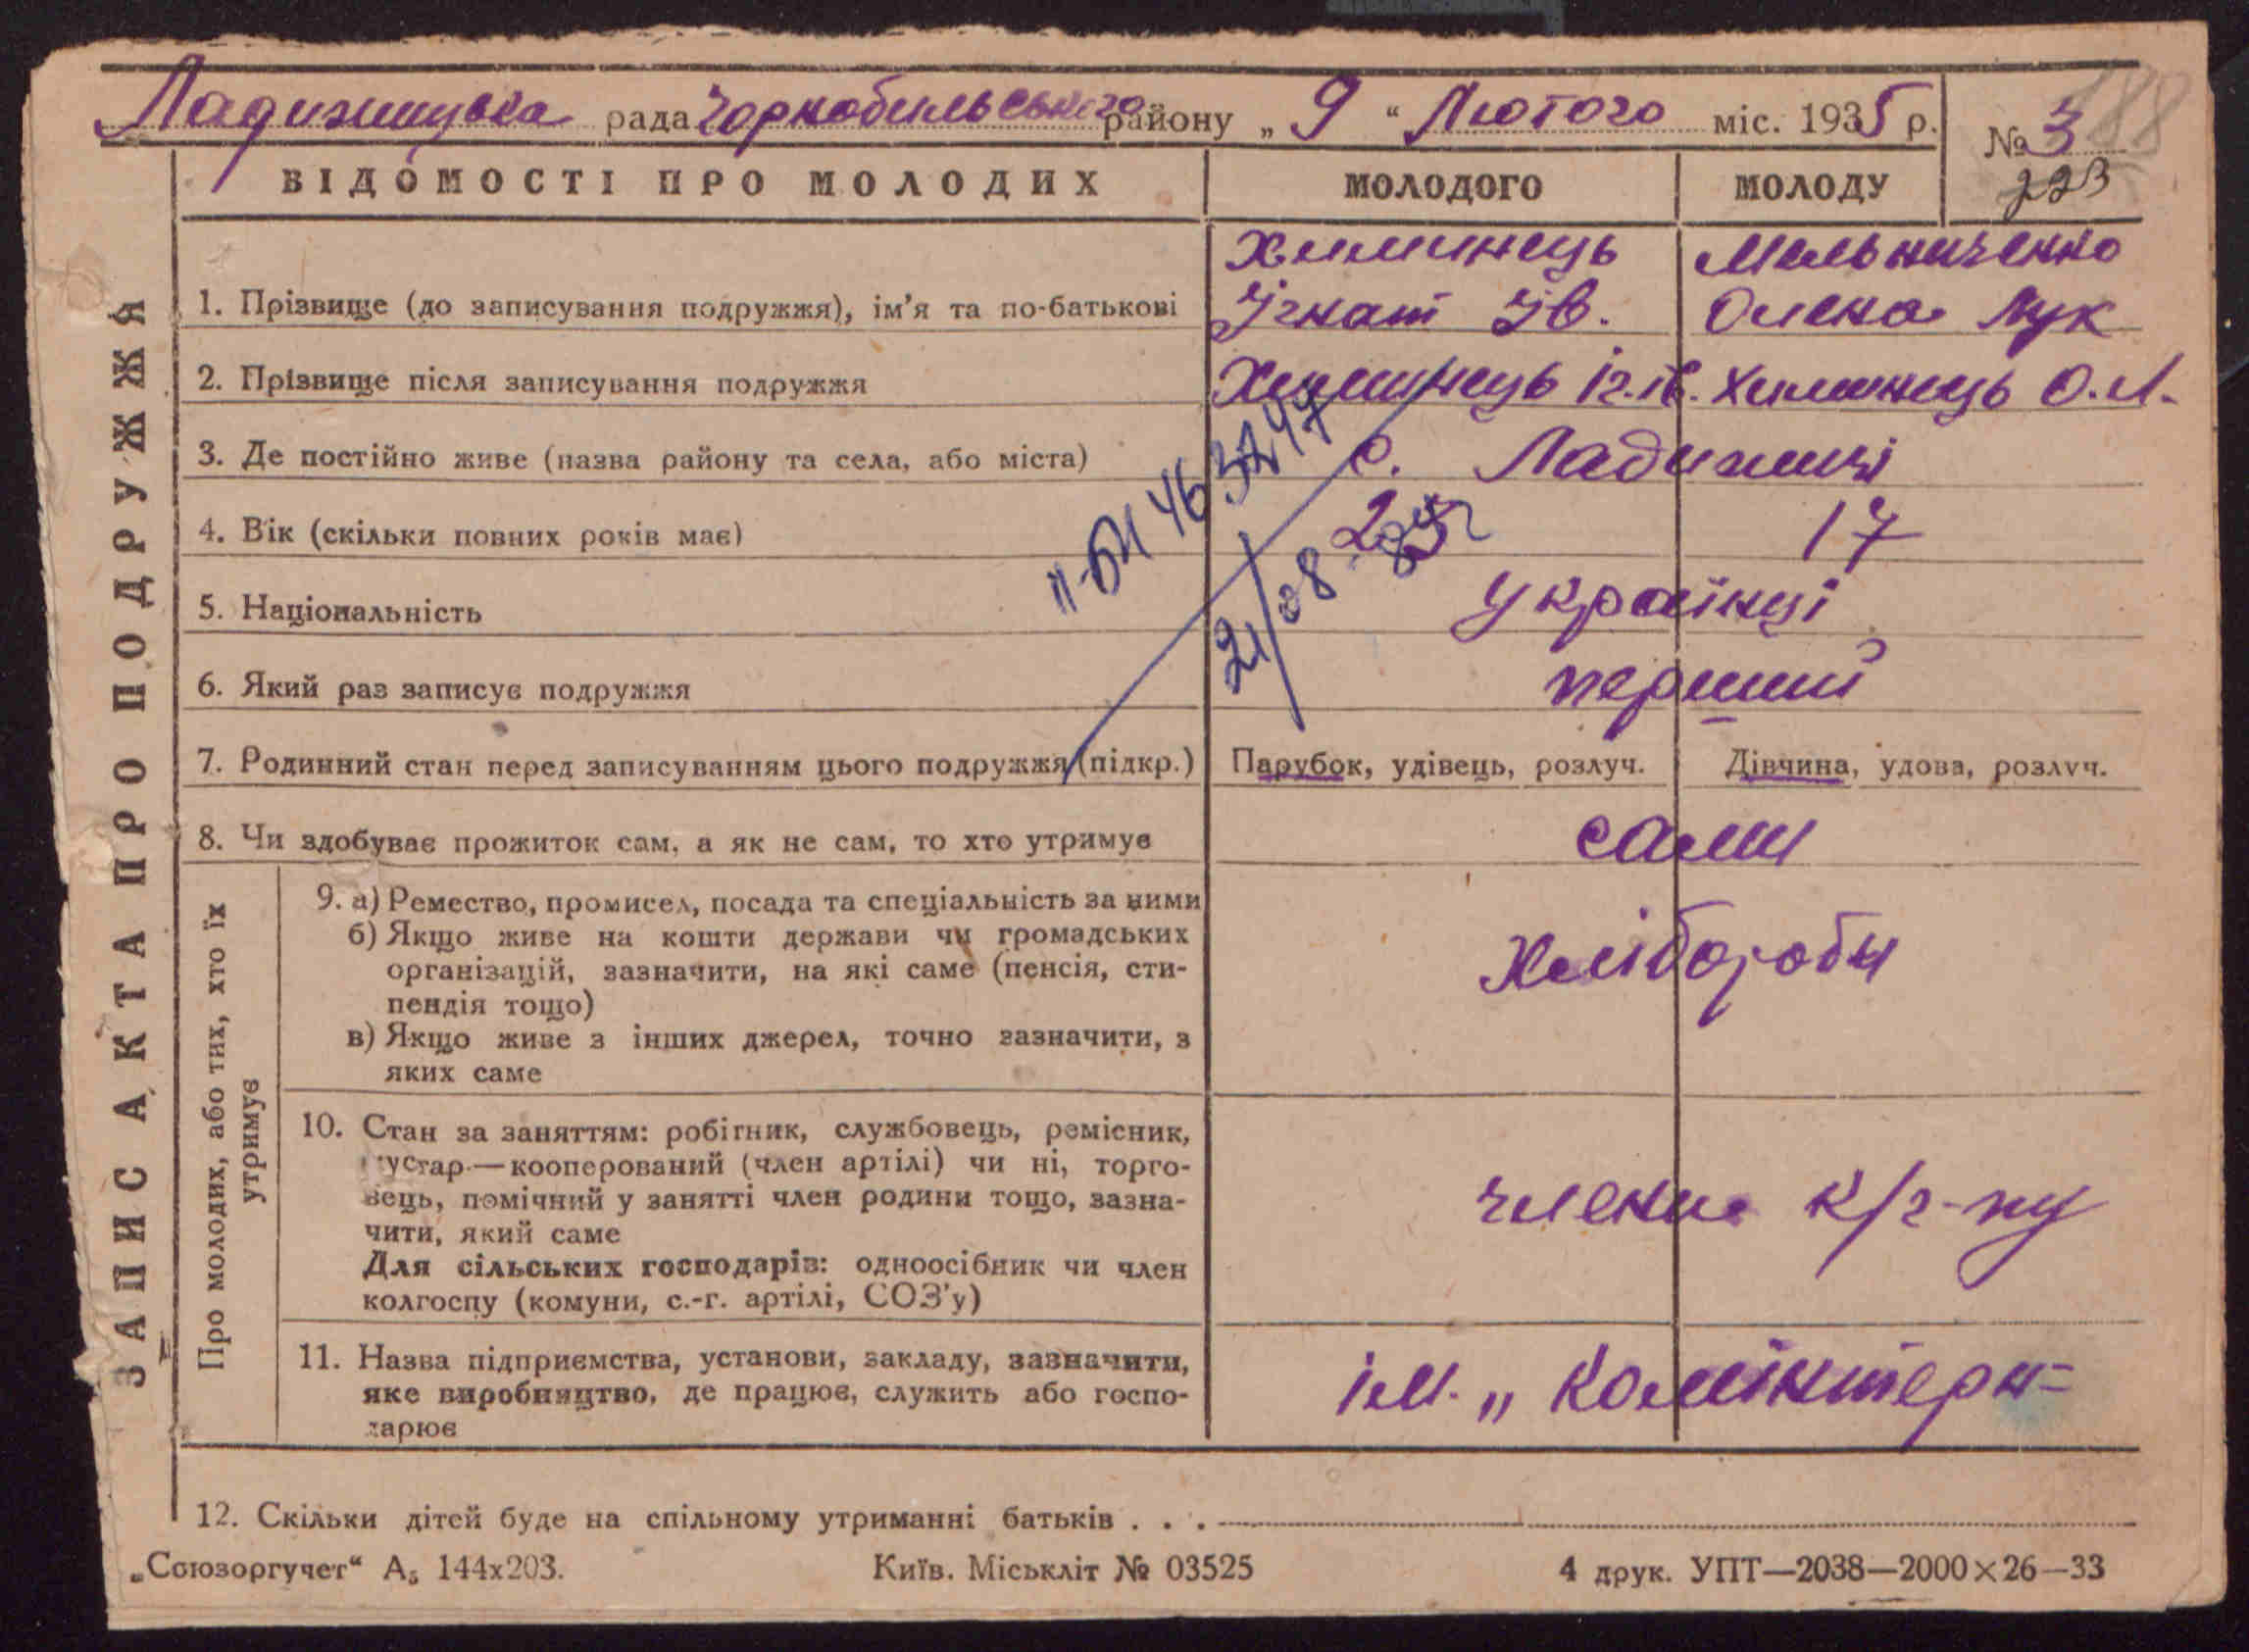 Ладижицька рада Чорнобильського району „ 9 “ Лютого міс. 1935 р.
№ 3
188
223
ВІДОМОСТІ ПРО МОЛОДИХ
МОЛОДОГО
МОЛОДУ
ЗАПИС АКТА ПРО ПОДРУЖЖЯ
1. Прізвище (до записування подружжя), ім'я та по-батькові
Химинець
Ігнат Ів.
Мельниченко
Олена Лук
2. Прізвище після записування подружжя
Химинець Іг. Ів. Химинець О. Л.
3. Де постійно живе (назва району та села, або міста)
с. Ладижичі
4. Вік (скільки повних років має)
17
5. Національність
Українці
6. Який раз записує подружжя
перший
7. Родинний стан перед записуванням цього подружжя (підкр.)
Парубок, удівець, розлуч.
Дівчина, удова, розлуч.
8. Чи здобуває прожиток сам, а як не сам, то хто утримує
сами
Про молодих, або тих, хто їх
утримує
9. а) Ремество, промисел, посада та спеціальність за ними
б) Якщо живе на кошти держави чи громадських
організацій, зазначити, на які саме (пенсія, сти-
пендія тощо)
в) Якщо живе з інших джерел, точно зазначити, з
яких саме
Хліборобы
10. Стан за заняттям: робітник, службовець, ремісник,
кустар—кооперований (член артілі) чи ні, торго-
вець, помічний у занятті член родини тощо, зазна-
чити, який саме
Для сільських господарів: одноосібник чи член
колгоспу (комуни, с.-г. артілі, СОЗ'у)
члени к/г-пу
11. Назва підприємства, установи, закладу, зазначити,
яке виробництво, де працює, служить або госпо-
дарює
ім. „ Комінтерн=
12. Скільки дітей буде на спільному утриманні батьків . . .
„Союзоргучет“ А₅ 144х203.
Київ. Міськліт № 03525
4 друк. УПТ—2038—2000×26—33